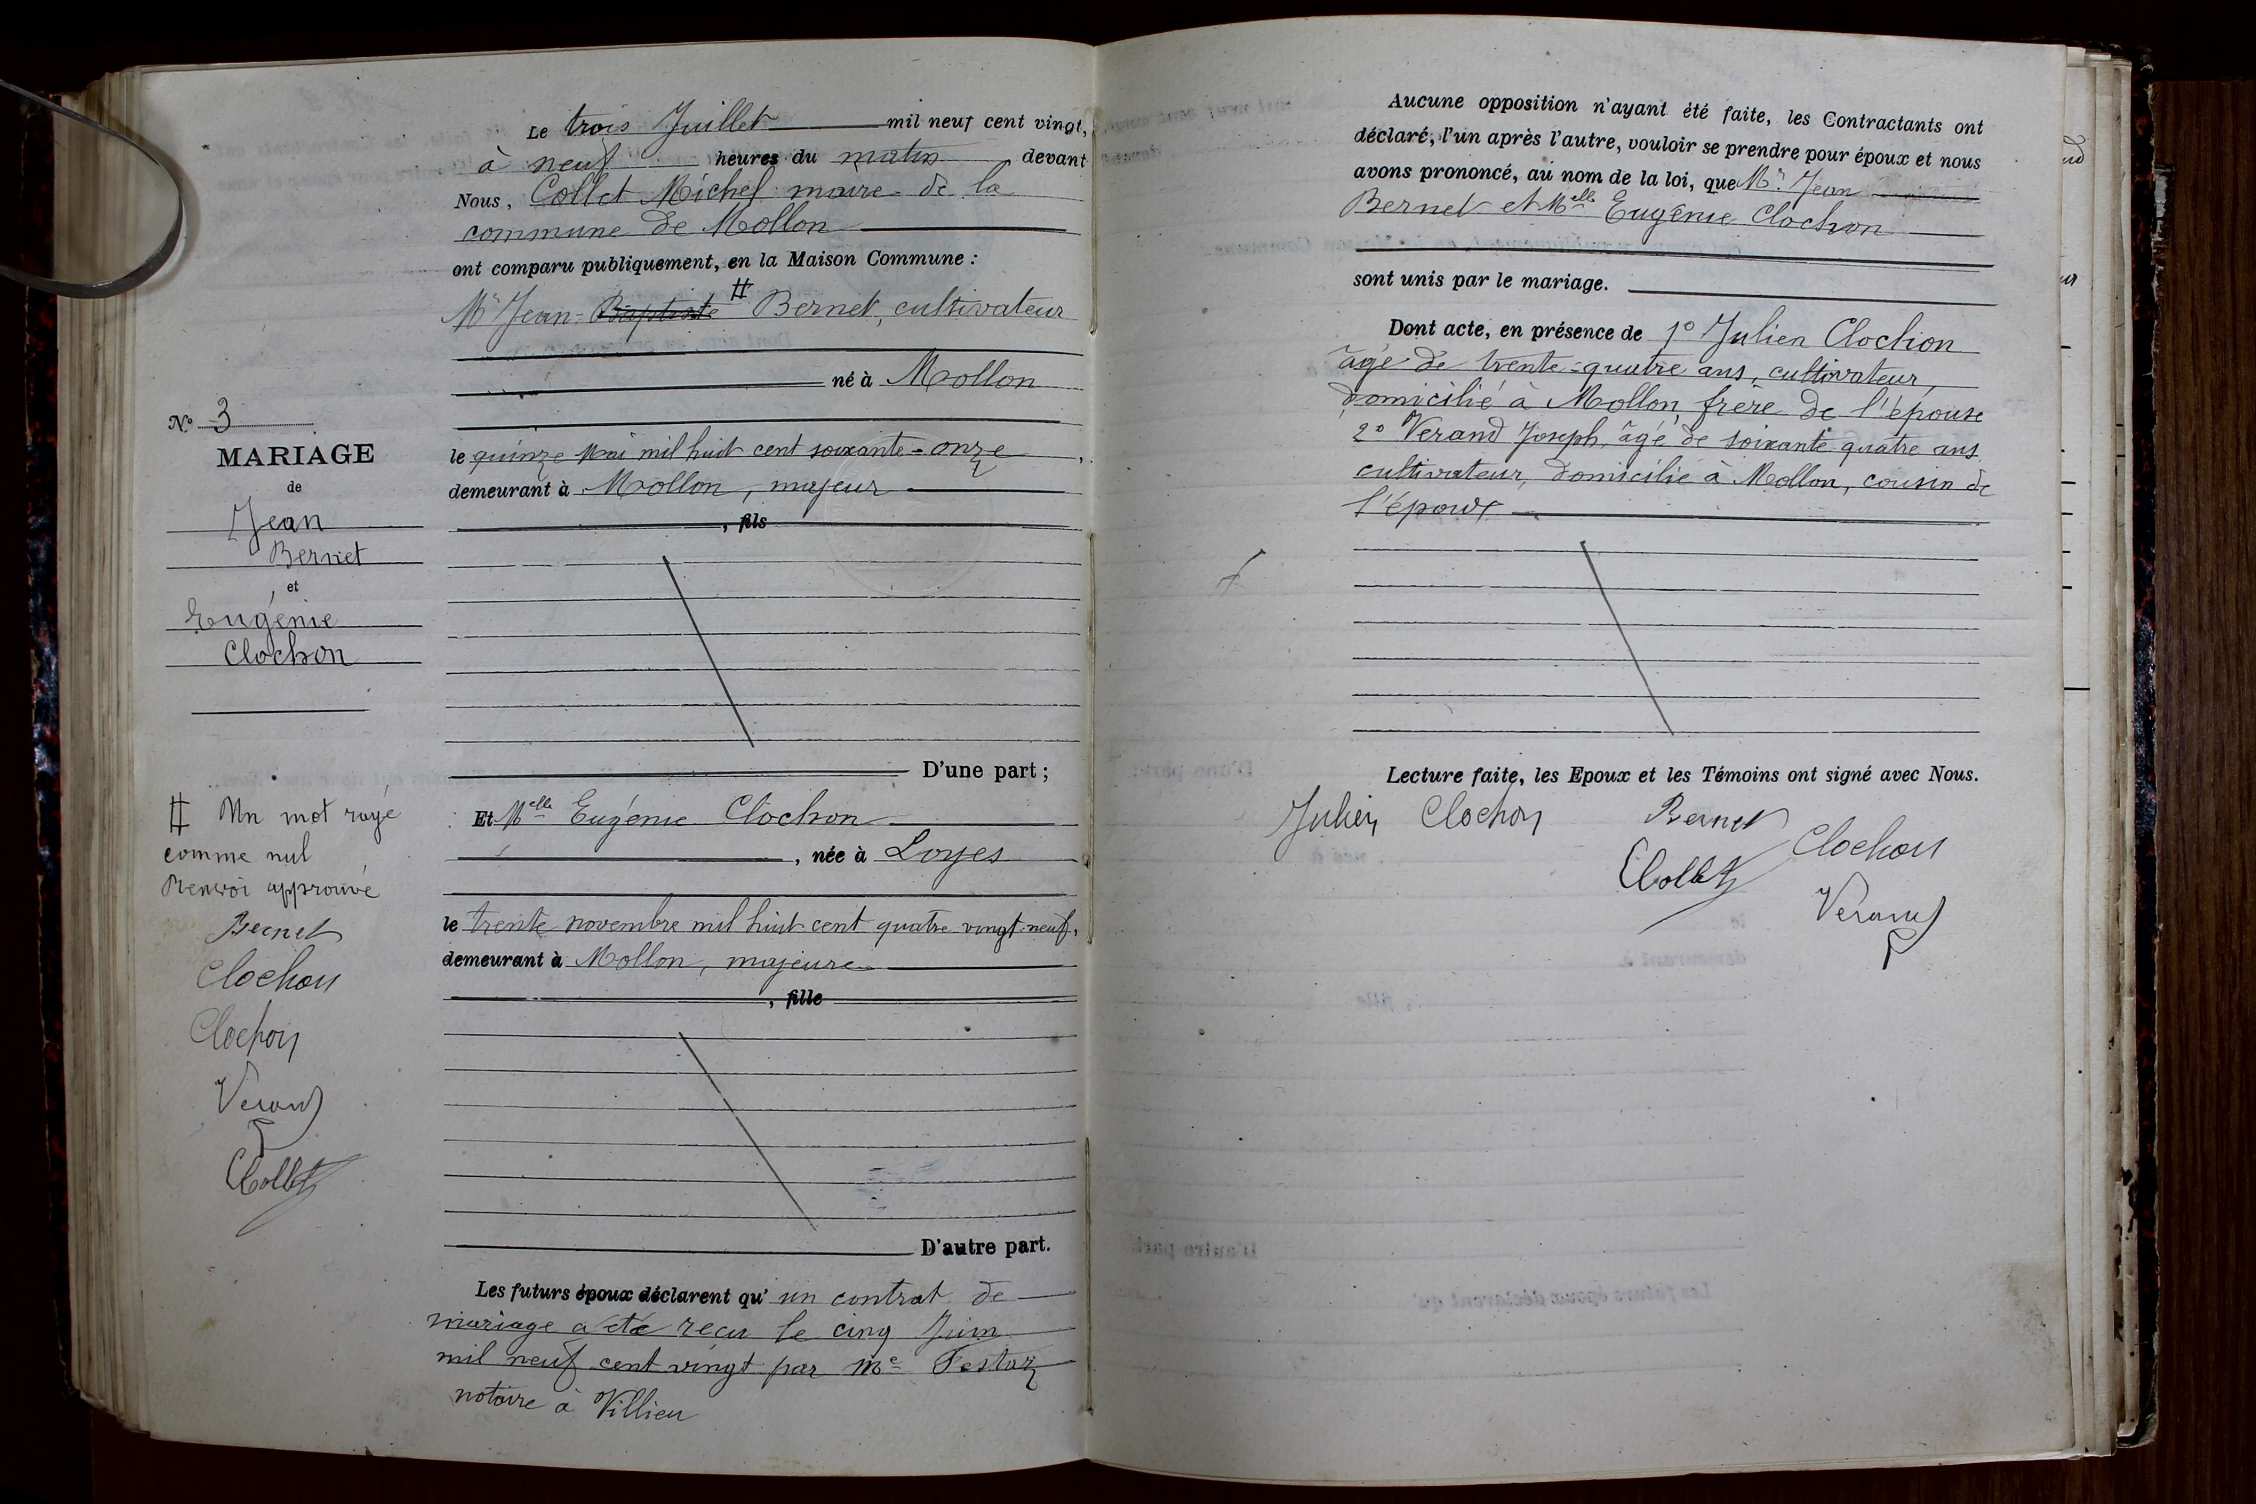 Le trois Juillet mil neuf cent vingt,
à neuf heures du matin devant
Nous, Collet Michel maire de la
commune de Mollon
ont comparu publiquement, en la Maison Commune :
Mr Jean-Baptiste # Bernet, cultivateur
né à Mollon
le quinze Mai mil huit cent soixante-onze,
demeurant à Mollon, majeur
, fils
D'une part ;
Et Melle Eugénie Clochon
, née à Loyes
le trente novembre mil huit cent quatre vingt neuf,
demeurant à Mollon, majeure
, fille
D'autre part.
Les futurs époux déclarent qu'un contrat de
mariage a été reçu le cinq Juin
mil neuf cent vingt par Me Festaz
notaire à Villieu
No 3
MARIAGE
de
Jean
Bernet
et
Eugénie
Clochon
# Un mot rayé
comme nul
Renvoi approuvé
Bernet
Clochon
Clochon
Verand
Collet
Aucune opposition n'ayant été faite, les Contractants ont
déclaré, l'un après l'autre, vouloir se prendre pour époux et nous
avons prononcé, au nom de la loi, que Mr Jean
Bernet et Melle Eugénie Clochon
sont unis par le mariage.
Dont acte, en présence de 1o Julien Clochon
âgé de trente-quatre ans, cultivateur,
domicilié à Mollon, frère de l'épouse
2o Verand Joseph, âgé de soixante quatre ans
cultivateur, domicilié à Mollon, cousin de
l'époux
Lecture faite, les Epoux et les Témoins ont signé avec Nous.
Julien Clochon Bernet
Clochon
Collet
Verand